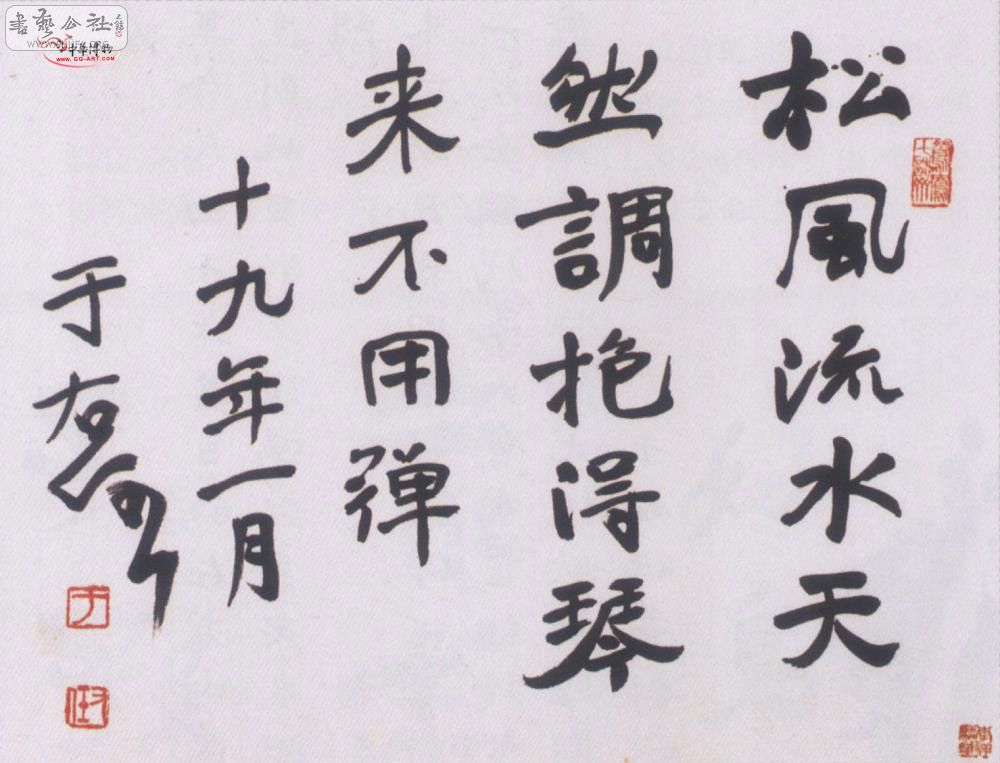 松風流水天
然調抱得琴
来不用弾
十九年一月
于右任
書藝公社
中華博物
www.GG-ART.com